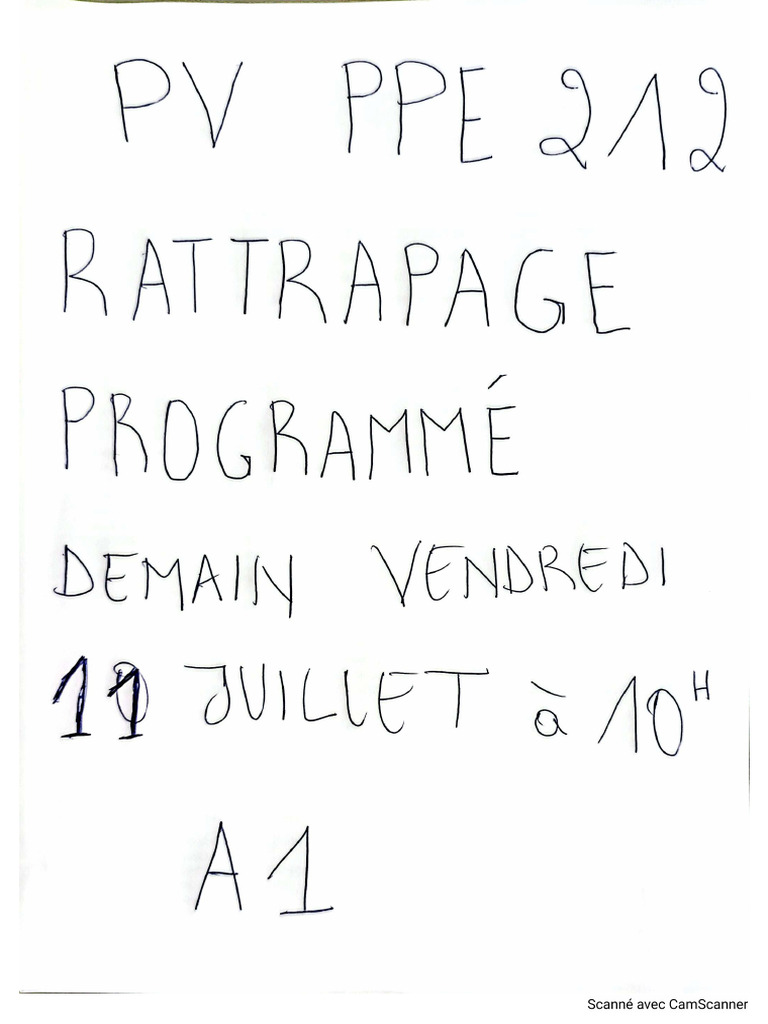 PV PPE 212
RATTRAPAGE
PROGRAMMÉ
DEMAIN VENDREDI
11 JUILLET à 10H
A1
Scanné avec CamScanner